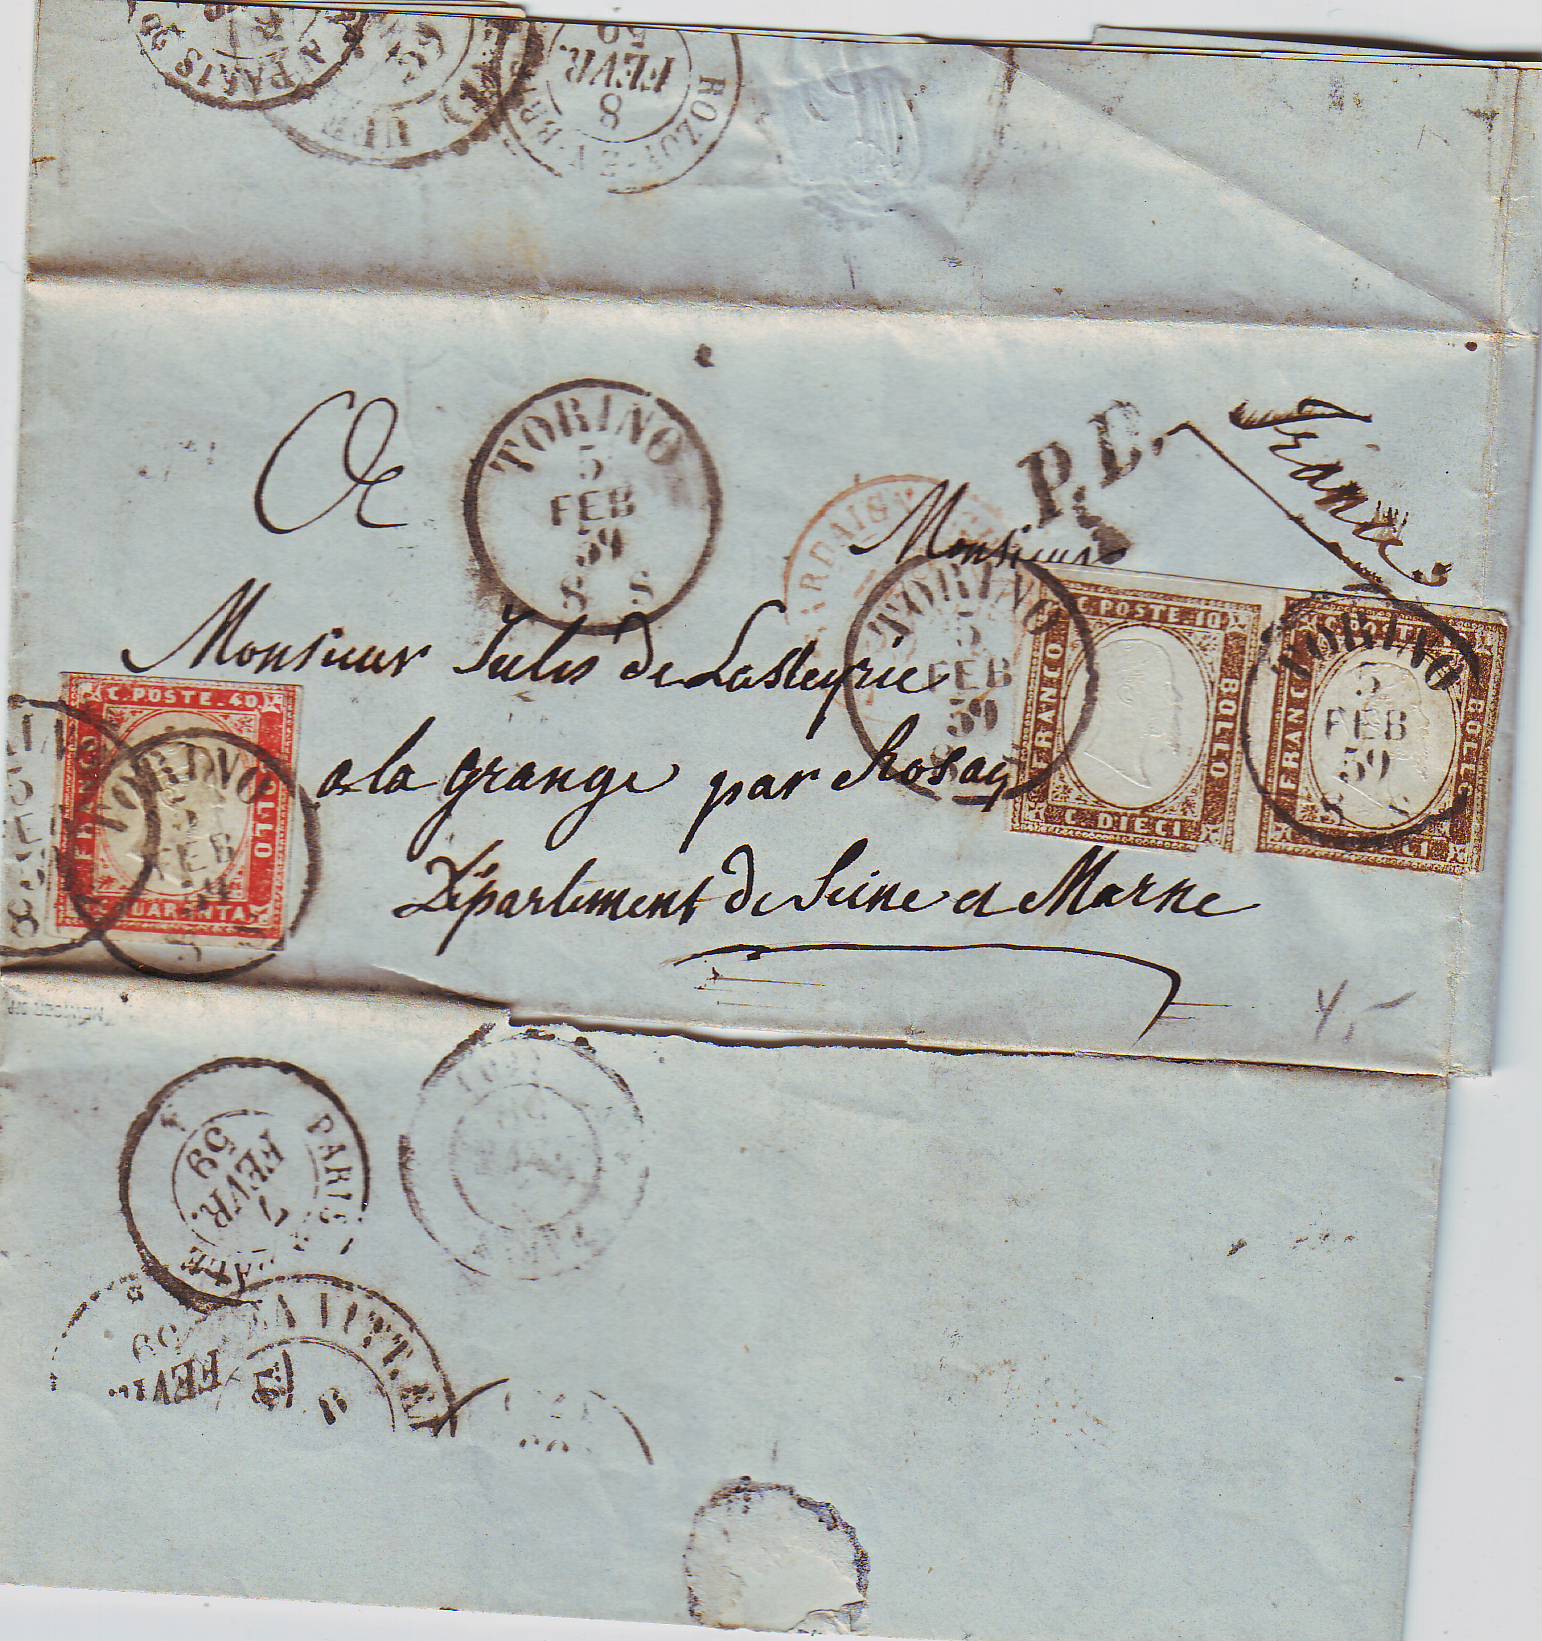 PARIS
8
FEVR.
59
ROZOY-EN-BRIE
TORINO
5
FEB
59
8 S
P.D.
France
Monsieur
TORINO
5
FEB
59
C. POSTE. 10
FRANCO
BOLLO
C. DIECI
FRANCO
BOLLO
TORINO
5
FEB
59
Monsieur Jules de Lasteyrie
a la grange par Rosay
Département de Seine et Marne
C. POSTE. 40
FRANCO
BOLLO
QUARANTA
TORINO
5
FEB
59
PARIS
7
FEVR.
59
8
FEVR.
59